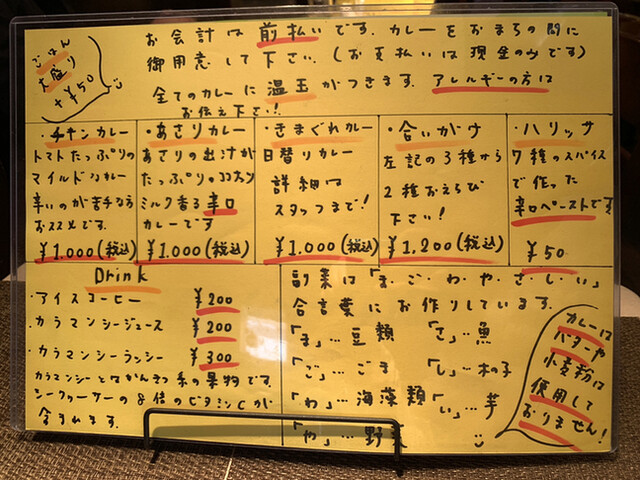 ごはん
大盛り
+¥50
お会計は前払いです。カレーをおまちの間に
御用意して下さい。(お支払いは現金のみです)
全てのカレーに温玉がつきます。アレルギーの方は
お伝え下さい!
・チキンカレー
トマトたっぷりの
マイルドなカレー
辛いのが苦手な方
おススメです。
¥1.000(税込)
・あさりカレー
あさりの出汁が
たっぷりのココナッツ
ミルク香る辛口
カレーです
¥1.000(税込)
・きまぐれカレー
日替りカレー
詳細は
スタッフまで!
¥1.000(税込)
・合いがけ
左記の3種から
2種おえらび
下さい!
¥1,200(税込)
・ハリッサ
7種のスパイス
で作った
辛口ペーストです
¥50
Drink
・アイスコーヒー ¥200
・カラマンシージュース ¥200
・カラマンシーラッシー ¥300
カラマンシーとはかんきつ系の果物です。
シークワーサーの8倍のビタミンCが
含まれます。
副菜は「ま・ご・わ・や・さ・し・い」
合言葉にお作りしています。
「ま」…豆類 「さ」…魚
「ご」…ごま 「し」…木の子
「わ」…海藻類 「い」…芋
「や」…野
カレーは
バターや
小麦粉は
使用して
おりません!